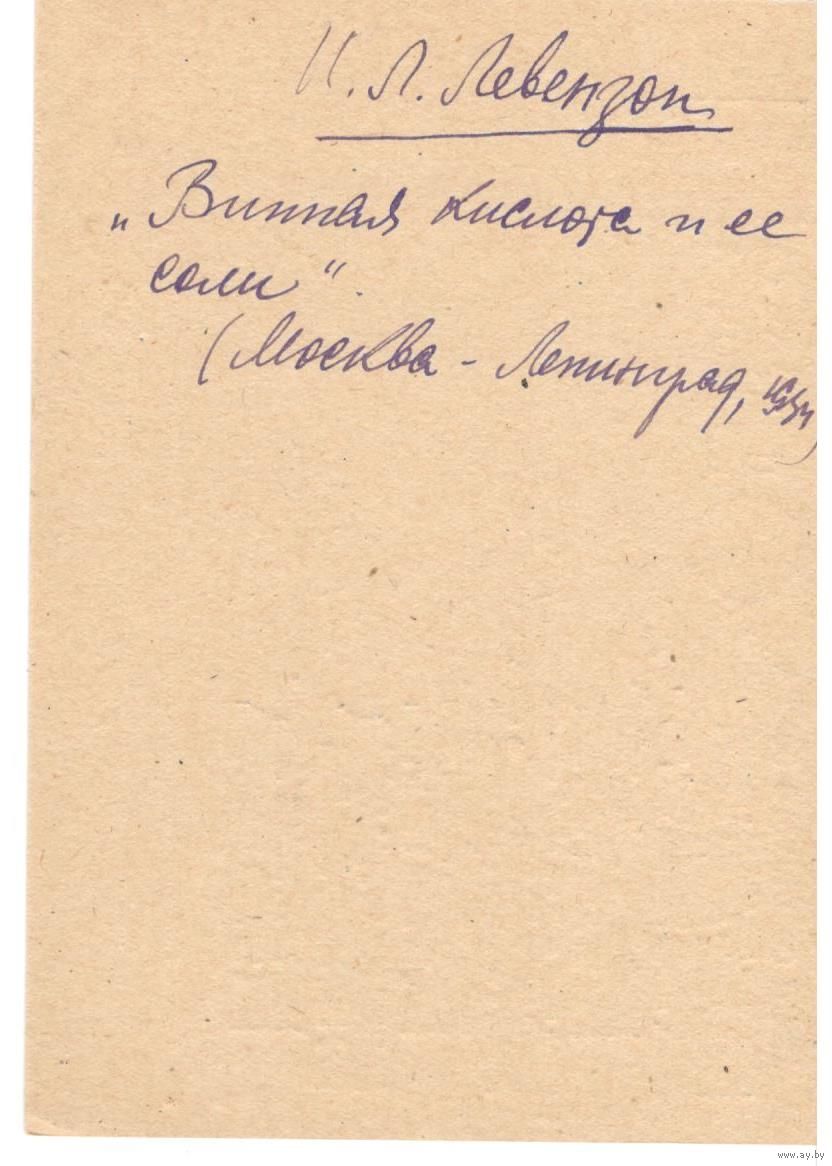 И. Л. Левензон
„Винная кислота и ее
соли“.
(Москва - Ленинград,
www.ay.by